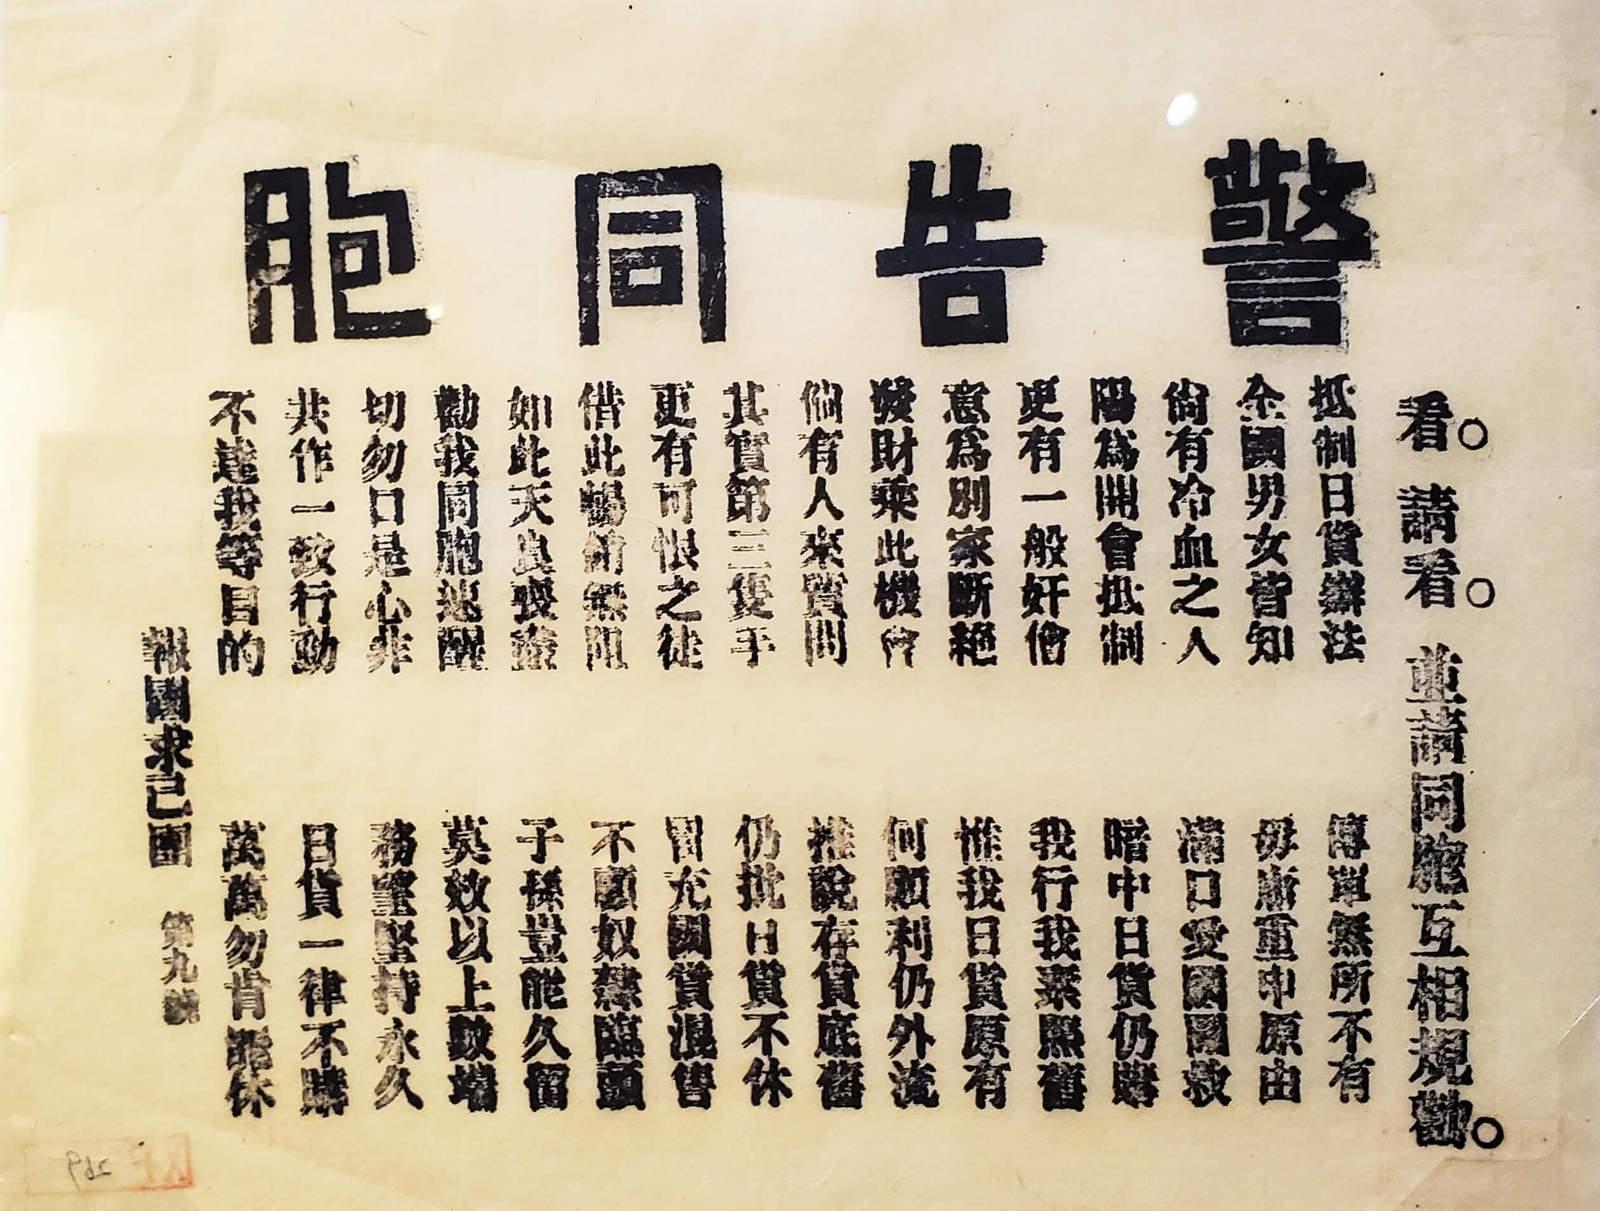 警告同胞
看。請看。並請同胞互相規勸。
抵制日貨辦法　傳單無所不有
全國男女皆知　毋庸重申原由
尙有冷血之人　滿口愛國國救
陽爲開會抵制　暗中日貨仍購
更有一般奸儈　我行我素照舊
意爲別家斷絕　惟我日貨原有
發財乘此機會　何顧利仍外流
倘有人來質問　推說存貨底舊
其實第三隻手　仍批日貨不休
更有可恨之徒　冒充國貨混售
借此暢銷無阻　不顧奴隸臨頭
如此天良喪盡　子孫豈能久留
勸我同胞速醒　莫效以上數端
切勿口是心非　務望堅持永久
共作一致行動　日貨一律不購
不達我等目的　萬萬勿肯罷休
報國求己團　第九號